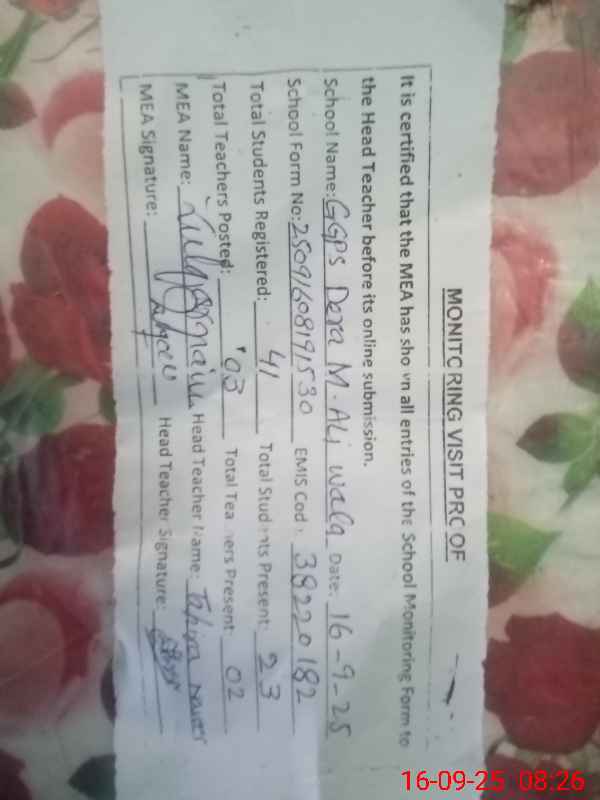 MONITORING VISIT PROOF
It is certified that the MEA has shown all entries of the School Monitoring Form to
the Head Teacher before its online submission.
School Name: GGPS Dera M. Ali wala Date: 16-9-25
School Form No: 25091608191530 EMIS Code: 38220182
Total Students Registered: 41 Total Students Present: 23
Total Teachers Posted: 03 Total Teachers Present: 02
MEA Name: Head Teacher Name: Tahira
MEA Signature: Head Teacher Signature:
16-09-25 08:26